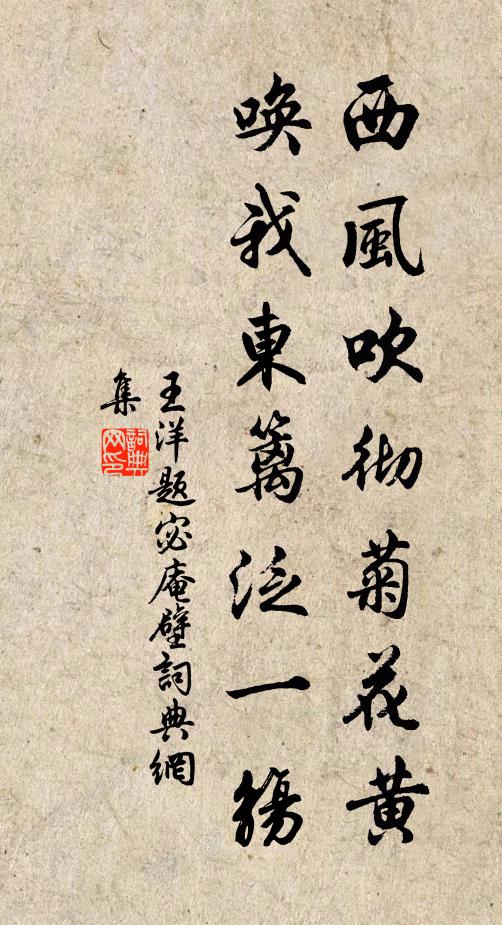 西風吹彻菊花黄
喚我東籬泛一觴
王洋题宓庵壁詞典網
集
詞典网印